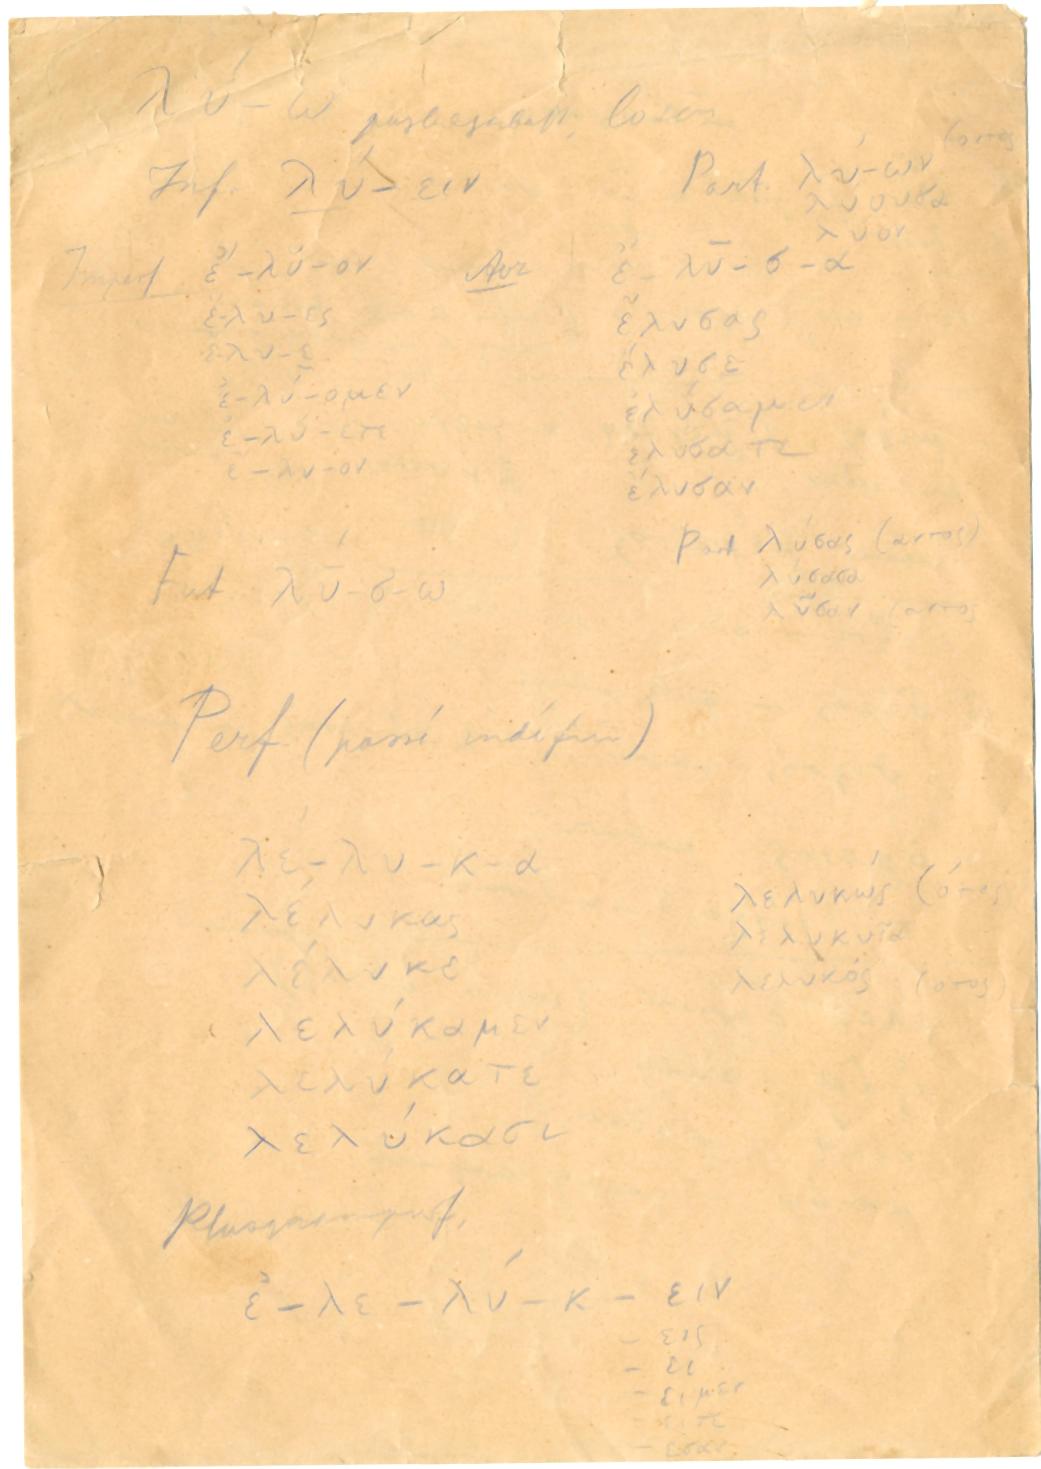 λύ-ω
Inf. λύ-ειν
Part. λύ-ων (οντος
λύουσα
λῦον
Imperf. ἔ-λῡ-ον
ἔ-λυ-ες
ἔλυ-ε
ἐ-λύ-ομεν
ἐ-λύ-ετε
ἔ-λυ-ον
Aor ἔ-λῡ-σ-α
ἔλυσας
ἔλυσε
ἐλύσαμεν
ἐλύσατε
ἔλυσαν
Part λύσας (αντος)
λύσασα
λῦσαν (αντος
Fut λύ-σ-ω
Perf. (passé indéfini)
λέ-λυ-κ-α
λέλυκας
λέλυκε
λελύκαμεν
λελύκατε
λελύκασι
λελυκώς (ότος
λελυκυῖα
λελυκός (οτος)
Plusquamperf.
ἐ-λε-λύ-κ-ειν
- εις
- ει
- ειμεν
- ειτε
- εσαν